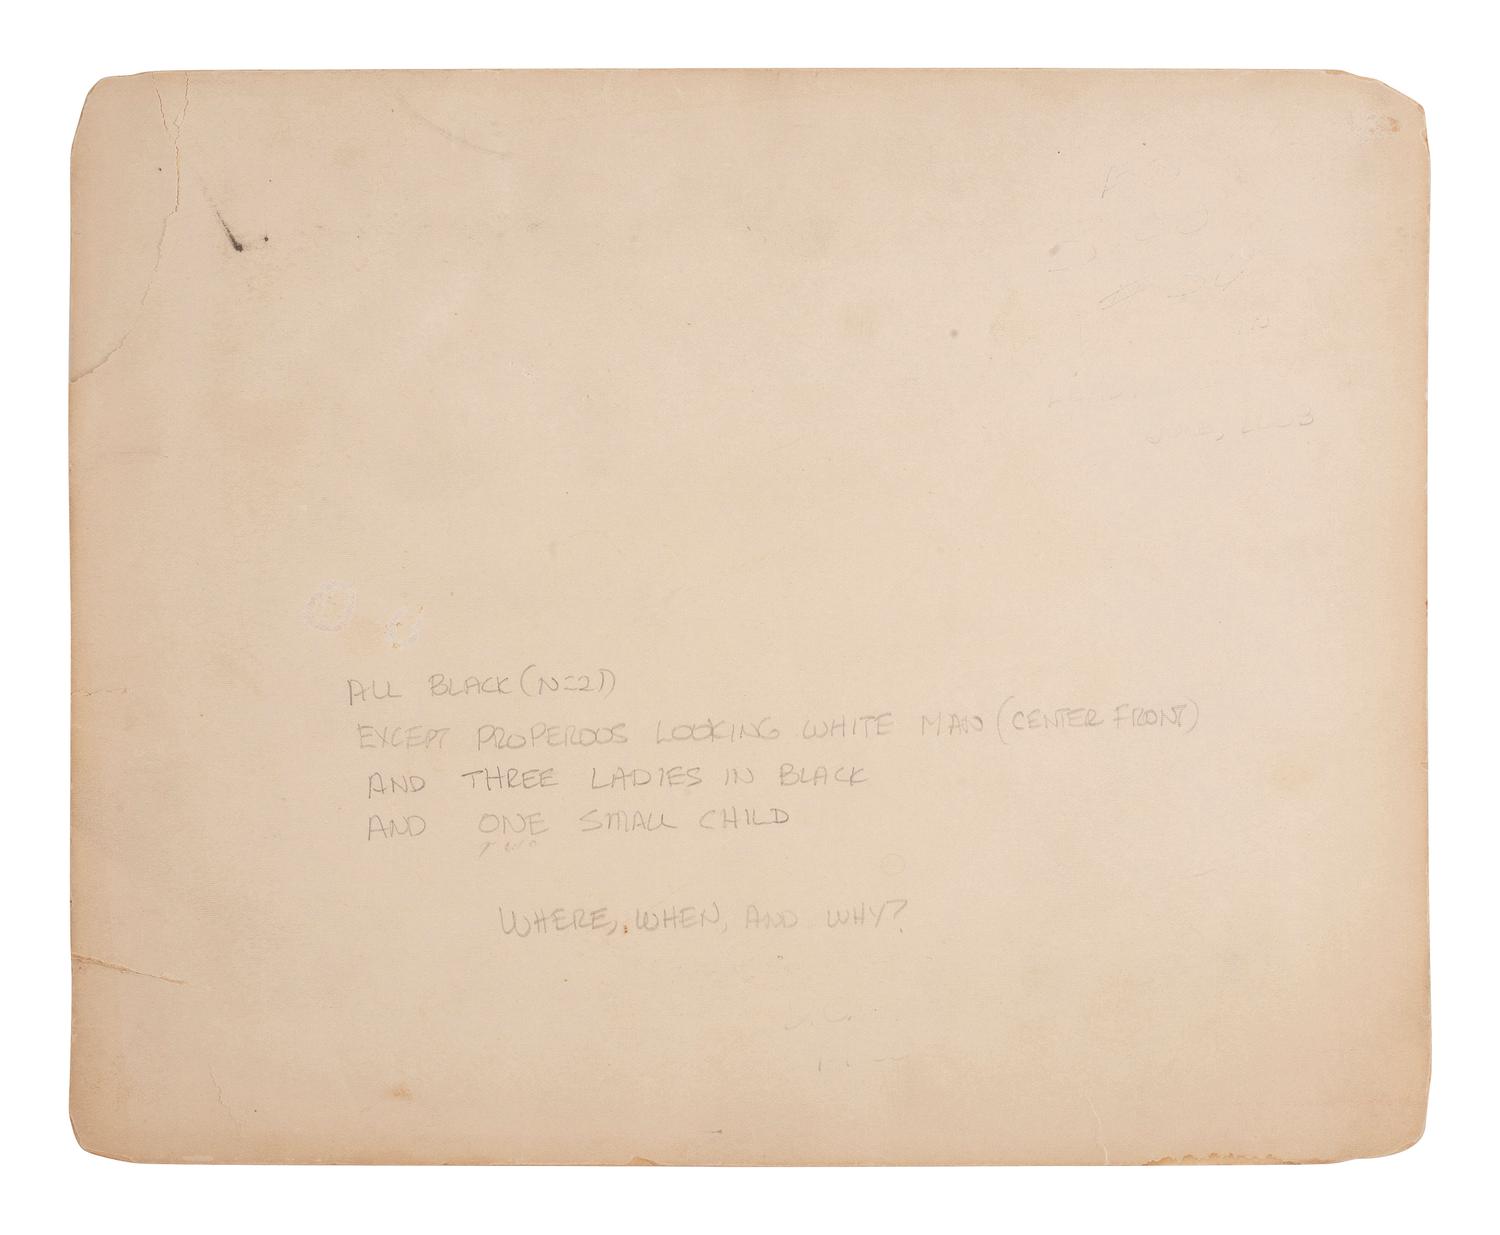 ALL BLACK (N=21)
EXCEPT PROPEROUS LOOKING WHITE MAN (CENTER FRONT)
AND THREE LADIES IN BLACK
AND ONE SMALL CHILD
TWO
WHERE, WHEN, AND WHY?